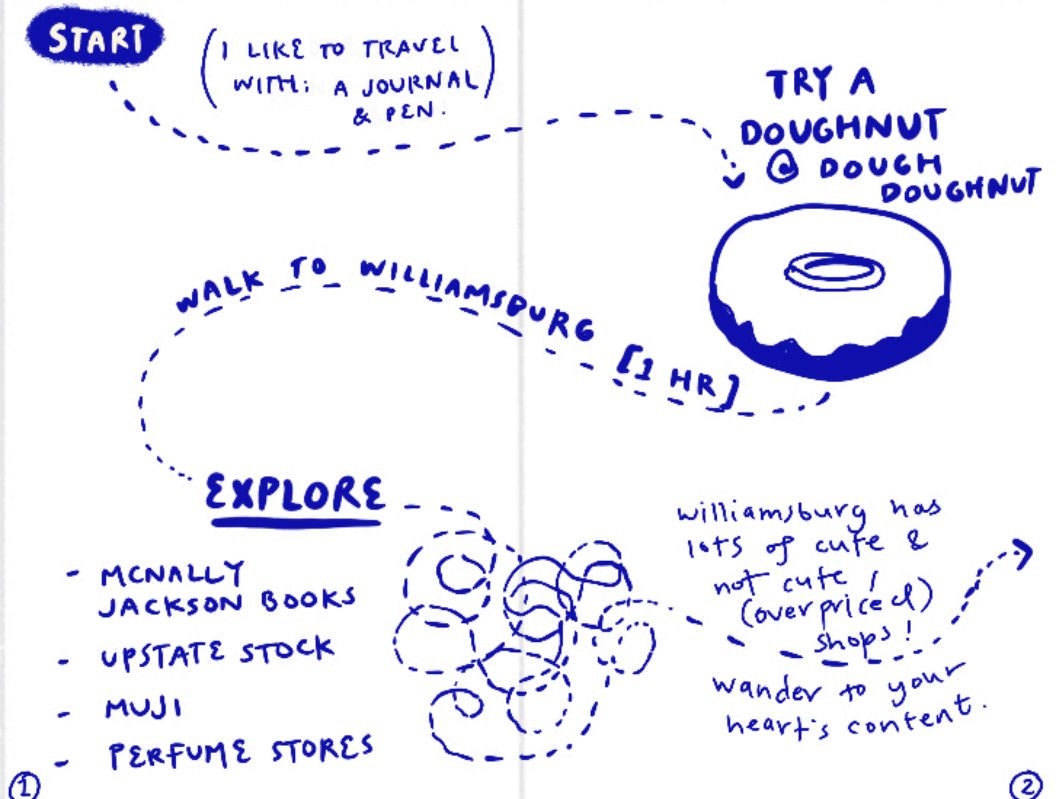 START
(I LIKE TO TRAVEL
WITH: A JOURNAL
& PEN.)
TRY A
DOUGHNUT
@ DOUGH
DOUGHNUT
WALK TO WILLIAMSBURG [1 HR]
EXPLORE
- MCNALLY
JACKSON BOOKS
- UPSTATE STOCK
- MUJI
- PERFUME STORES
williamsburg has
lots of cute &
not cute /
(overpriced)
shops!
wander to your
heart's content.
1
2